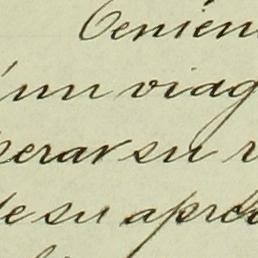 Tenien
un viag
perar su r
de su apro